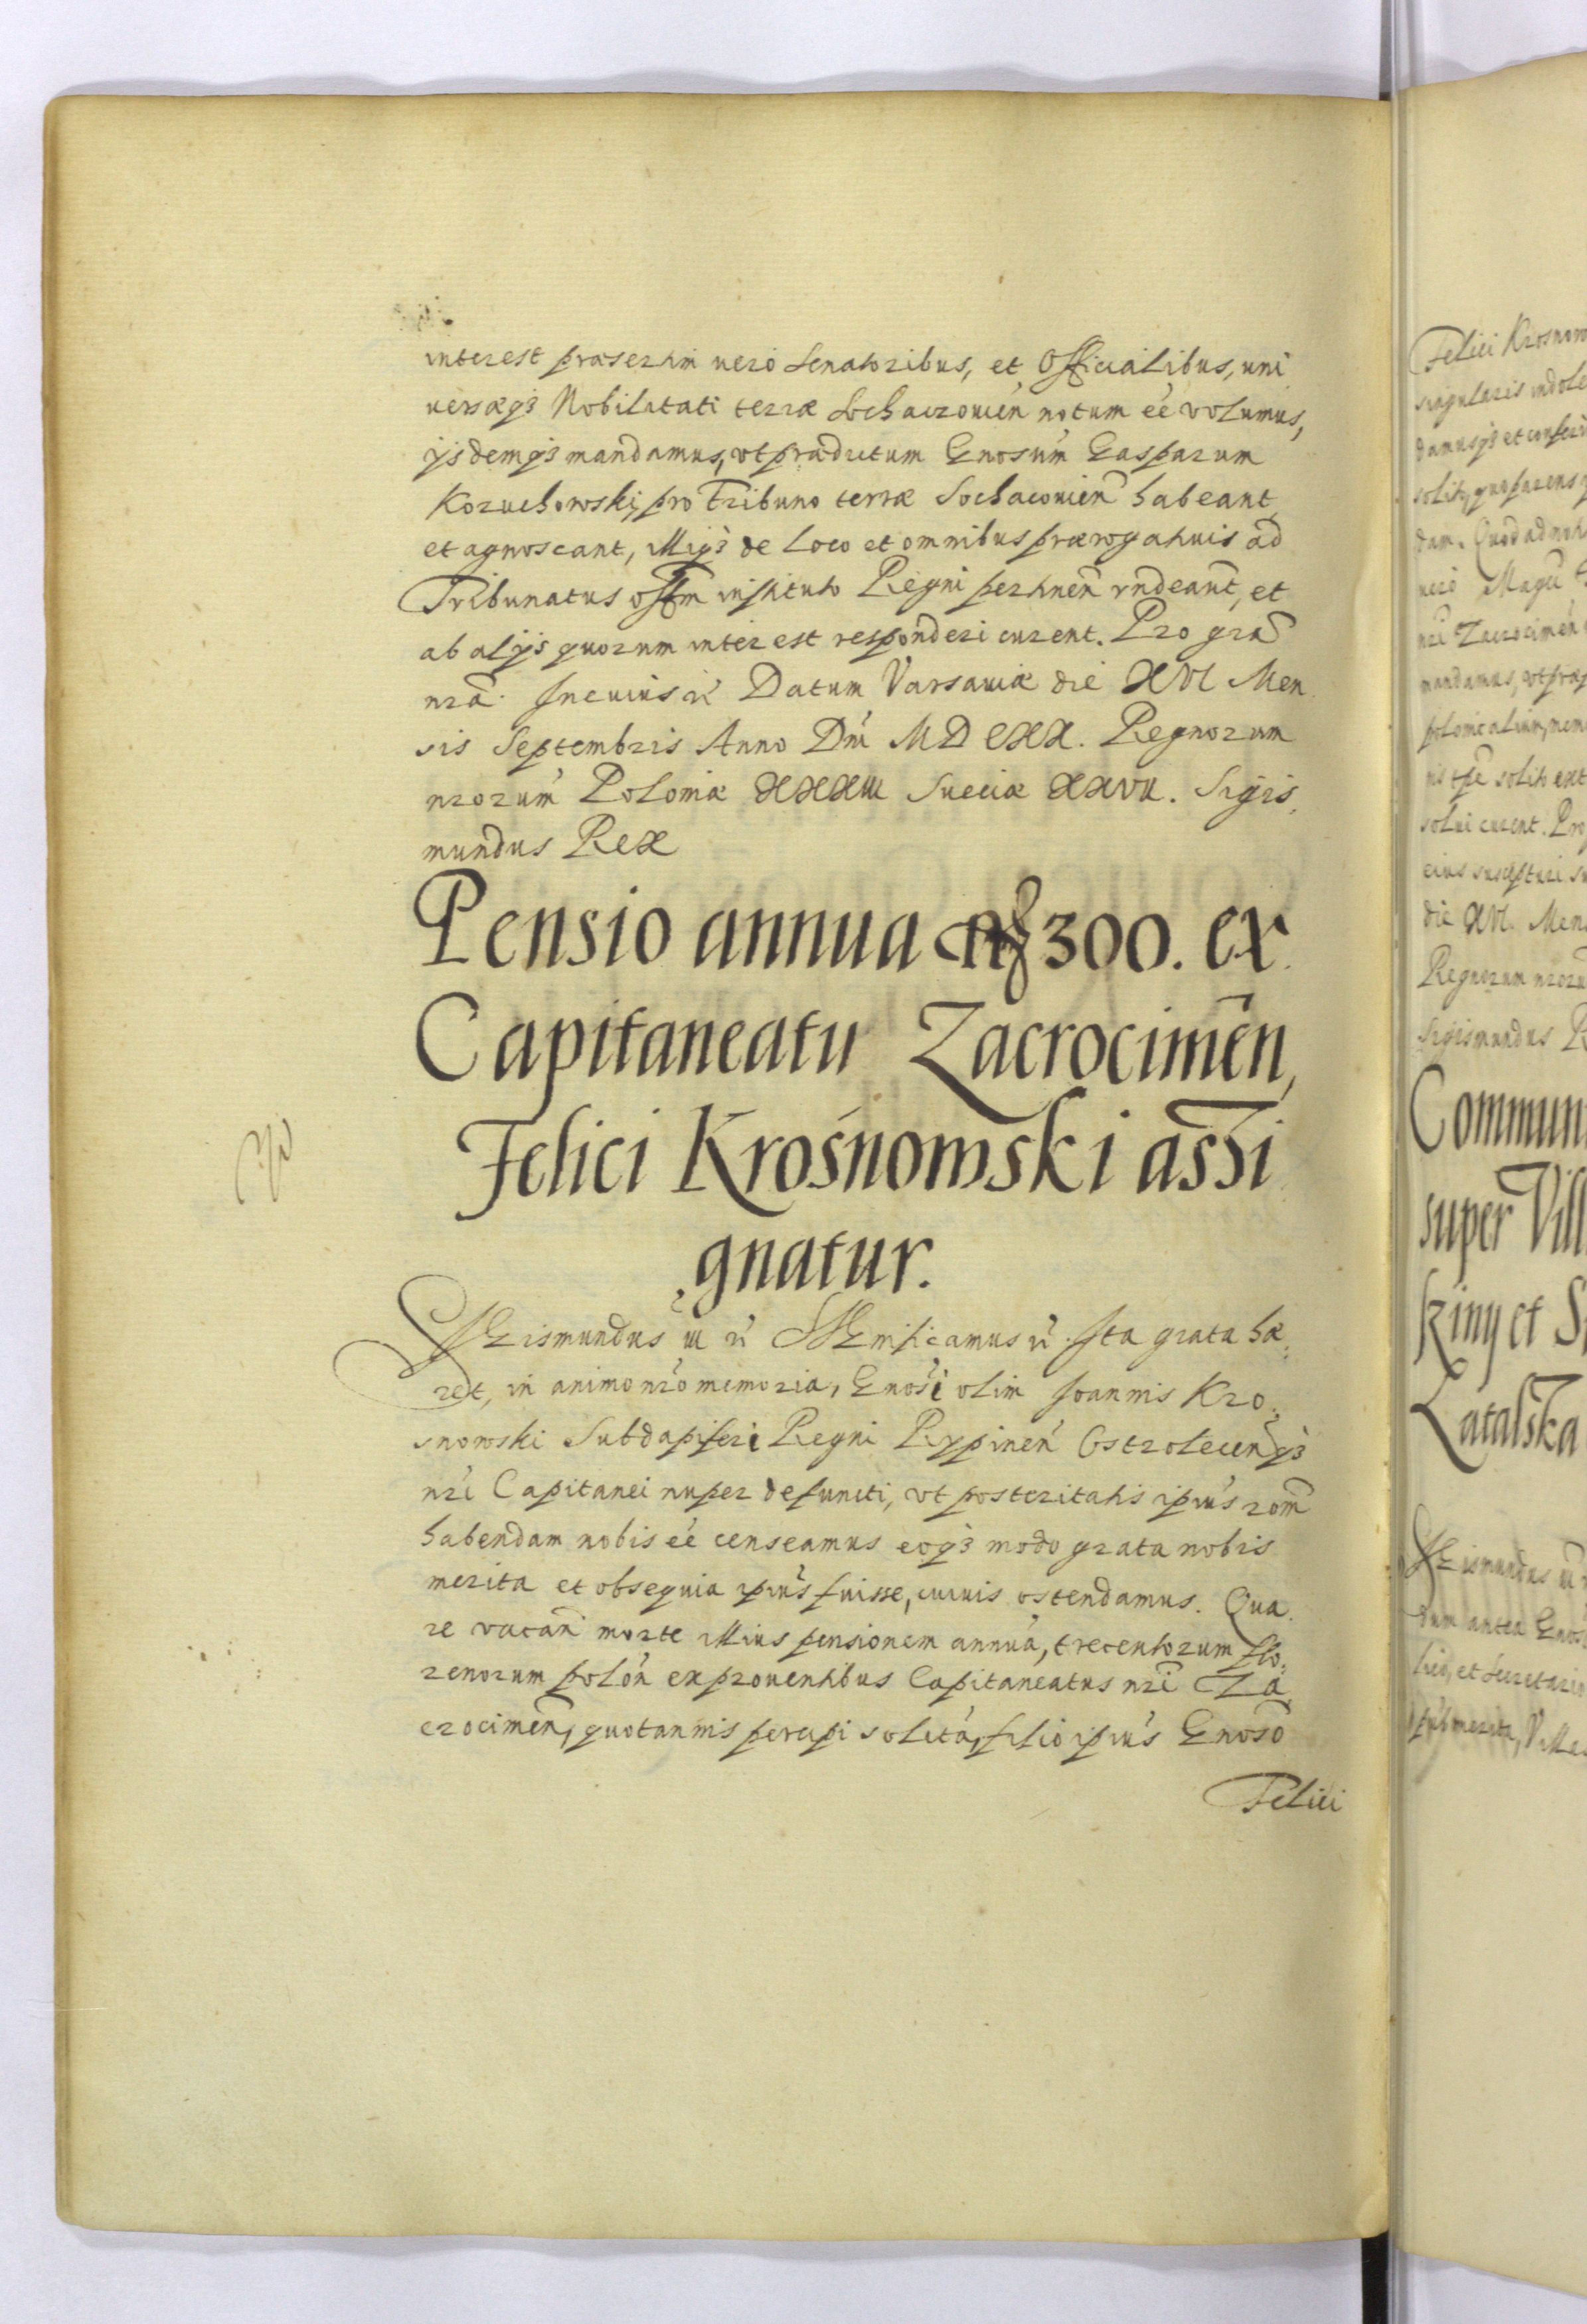 interest præsertim uero Senatoribus, et Officialibus, uni
uersæq3 Nobilitati terræ Sochaczouień notum eé volumus,
ijsdemq3 mandamus, vt prædictum Gnosum Gasparum
Kozuchowski, pro Tribuno terræ Sochaczouień habeant
et agnoscant, illiq3 de loco et omnibus prærogatiuis ad
Tribunatus offm instituto Regni pertineñ rñdeant, et
ab alijs quorum interest responderi curent. Pro gra
nrã. In cuius rȇ Datum Varsauiæ die XVI Men
sis Septembris Anno Dni MDCXX. Regnorum
nrorum Poloniæ XXXIII Sueciæ XXVII. Sigis
mundus Rex
Pensio annua 300. ex
Capitaneatu Zacrocimeñ,
Felici Krośnowski assi
gnatur.
SIGismundus III rȇ SIGnificamus rȇ. Ita grata hæ
ret, in animo nro memoria, Gnosi olim Joannis Kro
snowski Subdapiferi Regni Rypineń Ostroleceńq3
nri Capitanei nuper defuncti, vt posteritatis ipius rom
habendam nobis eé censeamus eoq3 modo grata nobis
merita et obsequia ipius fuisse, ciuis ostendamus. Qua
re vacañ morte illius pensionem annuã, trecentorum flo
renorum polon ex prouentibus Capitaneatus nri Za
crocimeñ, quotannis percipi solitã, filio ipius Gnoso
Felici
Felici Krosnow
singularis indole
damusq3 et conferi
solit, quo parens
dam. Quod ad noti
uero Magco
nri Zacrocimeń
mandamus, vt præ
solui curent. Pro
die XVI. Men
Regnorum nroru
Sigismundus R
Commun
super Vill
kiny et S
Latalska
SIGismundus III
dum antea Gnos
lico, et Secretario